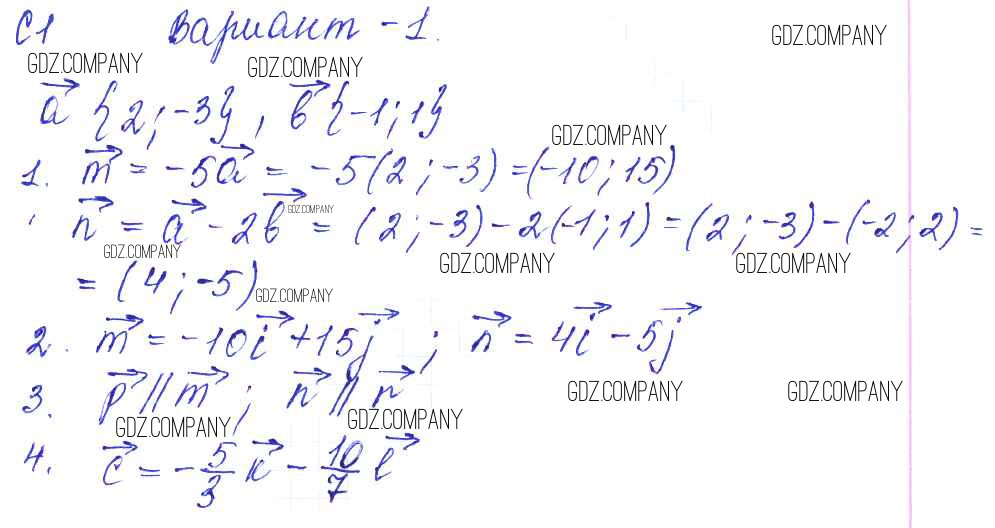 С1 Вариант -1.
GDZ.COMPANY
GDZ.COMPANY GDZ.COMPANY
a⃗ {2;-3}, b⃗ {-1;1}
GDZ.COMPANY
1. m⃗ = -5a⃗ = -5(2;-3) = (-10;15)
GDZ.COMPANY
n⃗ = a⃗ - 2b⃗ = (2;-3) - 2(-1;1) = (2;-3) - (-2;2) =
GDZ.COMPANY GDZ.COMPANY GDZ.COMPANY
= (4;-5)
GDZ.COMPANY
2. m⃗ = -10i⃗ + 15j⃗ ; n⃗ = 4i⃗ - 5j⃗
GDZ.COMPANY GDZ.COMPANY
3. p⃗ || m⃗ ; n⃗ || r⃗
GDZ.COMPANY GDZ.COMPANY
4. c⃗ = -5/3 k⃗ - 10/7 l⃗